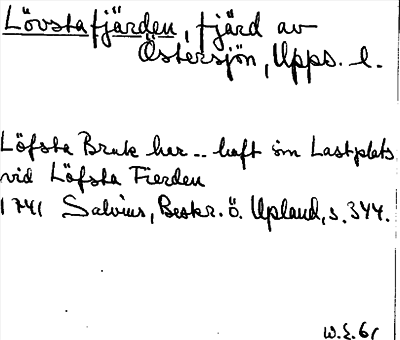 Lövstafjärden, fjärd av
Östersjön, Upps. l.
Löfsta Bruk har .. haft sin Lastplats
vid Löfsta Fierden
1741 Salvius, Beskr. ö. Upland, s. 344.
W.E. 61